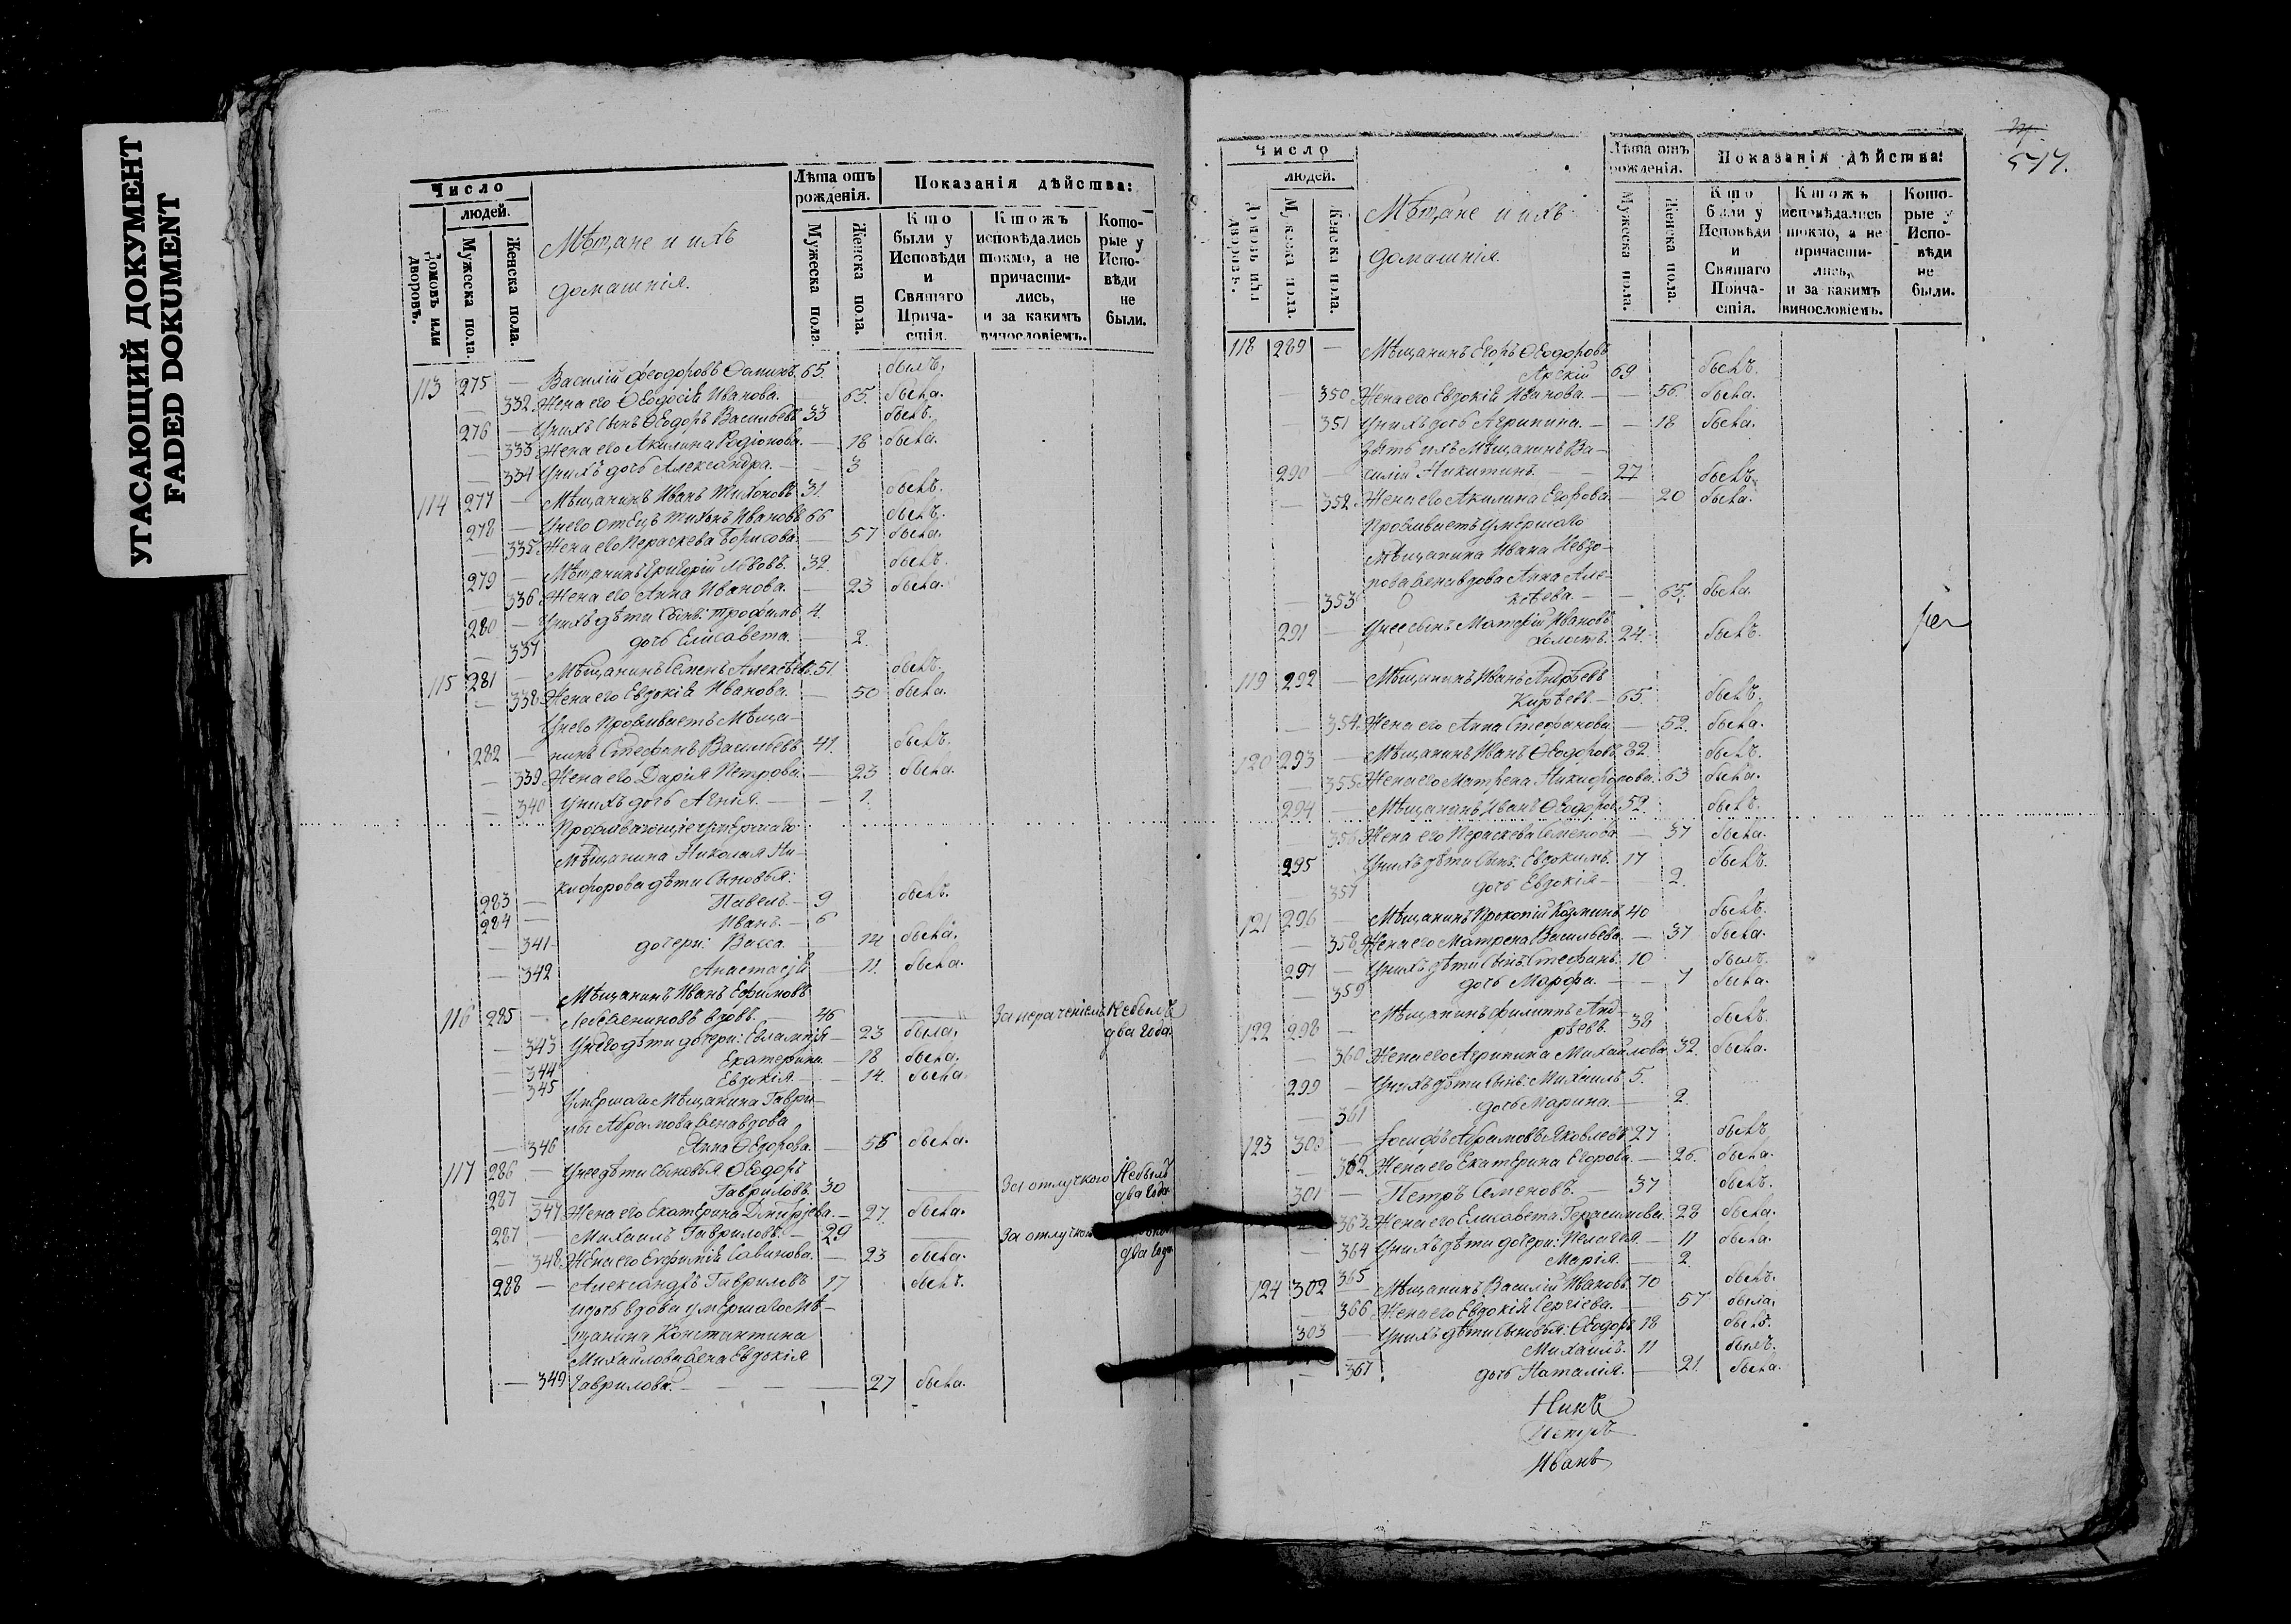 УГАСАЮЩИЙ ДОКУМЕНТ
FADED DOKUMENT
Число
людей.
Домовъ или дворовъ.
Мужеска пола.
Женска пола.
Мѣщане и ихъ
домашнія.
Лѣта отъ рожденія.
Мужеска пола.
Женска пола.
Показанія дѣйства:
Кто были у Исповѣди и Святаго Прича-стія.
Ктожъ исповѣдались токмо, а не причасти-лись, и за какимъ винословіемъ.
Кото-рые у Испо-вѣди не были.
113 275 — Василій Феодоровъ 65. былъ,
— 332. Жена его Ѳеодосія Иванова. — 65. была.
276 — У нихъ сынъ Ѳеодоръ Васильевъ 33 былъ.
— 333 Жена его Акилина Родіонова. — 18 была.
— 334 У нихъ дочь Александра. — — 3
114 277 — Мѣщанинъ Иванъ Тихоновъ 31. былъ.
278 — У него отецъ Тихонъ Ивановъ 66 былъ.
— 335 Жена его Пераскева Борисова. — 57 была.
279 — Мѣщанинъ Григорій Львовъ. 32. былъ.
— 336 Жена его Анна Иванова. — 23 была.
280 — У нихъ дѣти сынъ: Трофимъ 4.
— 337 дочь Елисавета. — 2.
115 281 — Мѣщанинъ Семенъ Алексѣевъ. 51. былъ.
— 338 Жена его Евдокія Иванова. — 50 была.
У него проживаетъ Мѣща-
282 — нинъ Стефанъ Васильевъ 41. былъ.
— 339 Жена его Дарія Петрова. — 23 была.
— 340 У нихъ дочь Агнія. — — 1.
Проживающіе умершаго
Мѣщанина Николая Ни-
кифорова дѣти сыновья:
283 — Павелъ. — 9 былъ.
284 — Иванъ. — 6
— 341 — дочери: Васса. — 14 была.
— 342 Анастасія — 11. была.
Мѣщанинъ Иванъ Ефимовъ
116 285 — вдовъ. — 46 — За нераченіемъ Небылъ два года.
— 343 У него дѣти дочери: Евлампія — 23 была.
— 344 Екатерина. — 18 была.
— 345 Евдокія. — 14. была.
Умершаго Мѣщанина Гаври-
лы Абрамова жена вдова
— 346 Анна Ѳеодорова. — 56 была.
117 286 — У нее дѣти сыновья Ѳеодоръ
Гавриловъ. 30 — За отлучкою Небылъ два года
287 347 Жена его Екатерина Дмитріева. — 27. была.
287 — Михаилъ Гавриловъ. — 29 — За отлучкою два года
— 348. Жена его Евфимія Савинова. — 23 была.
288 — Александръ Гавриловъ 17 былъ.
и дочь вдова умершаго Мѣ-
щанина Константина
Михайлова жена Евдокія
— 349 Гаврилова. — — — 27 была.
517.
Число
людей.
Домовъ или дворовъ.
Мужеска пола.
Женска пола.
Мѣщане и ихъ
домашнія.
Лѣта отъ рожденія.
Мужеска пола.
Женска пола.
Показанія дѣйства:
Кто были у Исповѣди и Святаго Прича-стія.
Ктожъ исповѣдались токмо, а не причасти-лись, и за какимъ винословіемъ.
Кото-рые у Испо-вѣди не были.
118 289 — Мѣщанинъ Егоръ Ѳеодоровъ
Арскій 69 былъ.
— 350 Жена его Евдокія Иванова. — — 56. была.
— 351 У нихъ дочь Агрипина. — — 18 была.
Зять ихъ Мѣщанинъ Ва-
290 — силій Никитинъ. — 27 былъ.
— 352. Жена его Акилина Егорова — 20 была.
Проживаетъ умершаго
Мѣщанина Ивана
жена вдова Анна Але-
— 353 ксѣева. — — 65. была.
291 — У нее сынъ Матѳій Ивановъ
холостъ. 24. былъ.
119 292 — Мѣщанинъ Иванъ Андреевъ
Кирѣевъ. — 65. былъ.
— 354. Жена его Анна Стефанова — 52. была.
120 293 — Мѣщанинъ Иванъ Ѳеодоровъ. 82. былъ.
— 355 Жена его Матрена Никифорова. 63 была.
294 — Мѣщанинъ Иванъ Ѳеодоров. 52. былъ.
— 356 Жена его Пераскева Семенова — 37 была.
295 У нихъ дѣти сынъ: Евдокимъ. 17 былъ.
— 357 дочь Евдокія — 2.
121 296 — Мѣщанинъ Прокопій Козминъ 40 былъ.
— 358 Жена его Матрена Васильева. — 37 была.
297 — У нихъ дѣти сынъ: Стефанъ. 10 былъ.
— 359 дочь Марфа. — — 7 была.
122 298 — Мѣщанинъ Филиппъ Анд-
рѣевъ. 38 былъ.
— 360 Жена его Агрипина Михайлова 32. была.
299 — У нихъ дѣти сынъ: Михаилъ 5.
— 361 дочь Марина. — 2.
123 300 — Іосифъ Абрамовъ Яковлевъ 27 былъ
— 362. Жена его Екатерина Егорова. — 26. была.
301 — Петръ Семеновъ. — 37 былъ.
363 Жена его Елисавета Герасимова. 28 была.
— 364 У нихъ дѣти дочери: Пелагія. — 11 была.
365 Марія. — 2.
124 302 — Мѣщанинъ Василій Ивановъ. 70 былъ.
— 366 Жена его Евдокія Сергіева. — 57 была.
303 — У нихъ дѣти сыновья: Ѳеодоръ 18 былъ.
Михаилъ. 11 былъ.
— 367 дочь Наталія. — 21. была.
Петръ
Иванъ